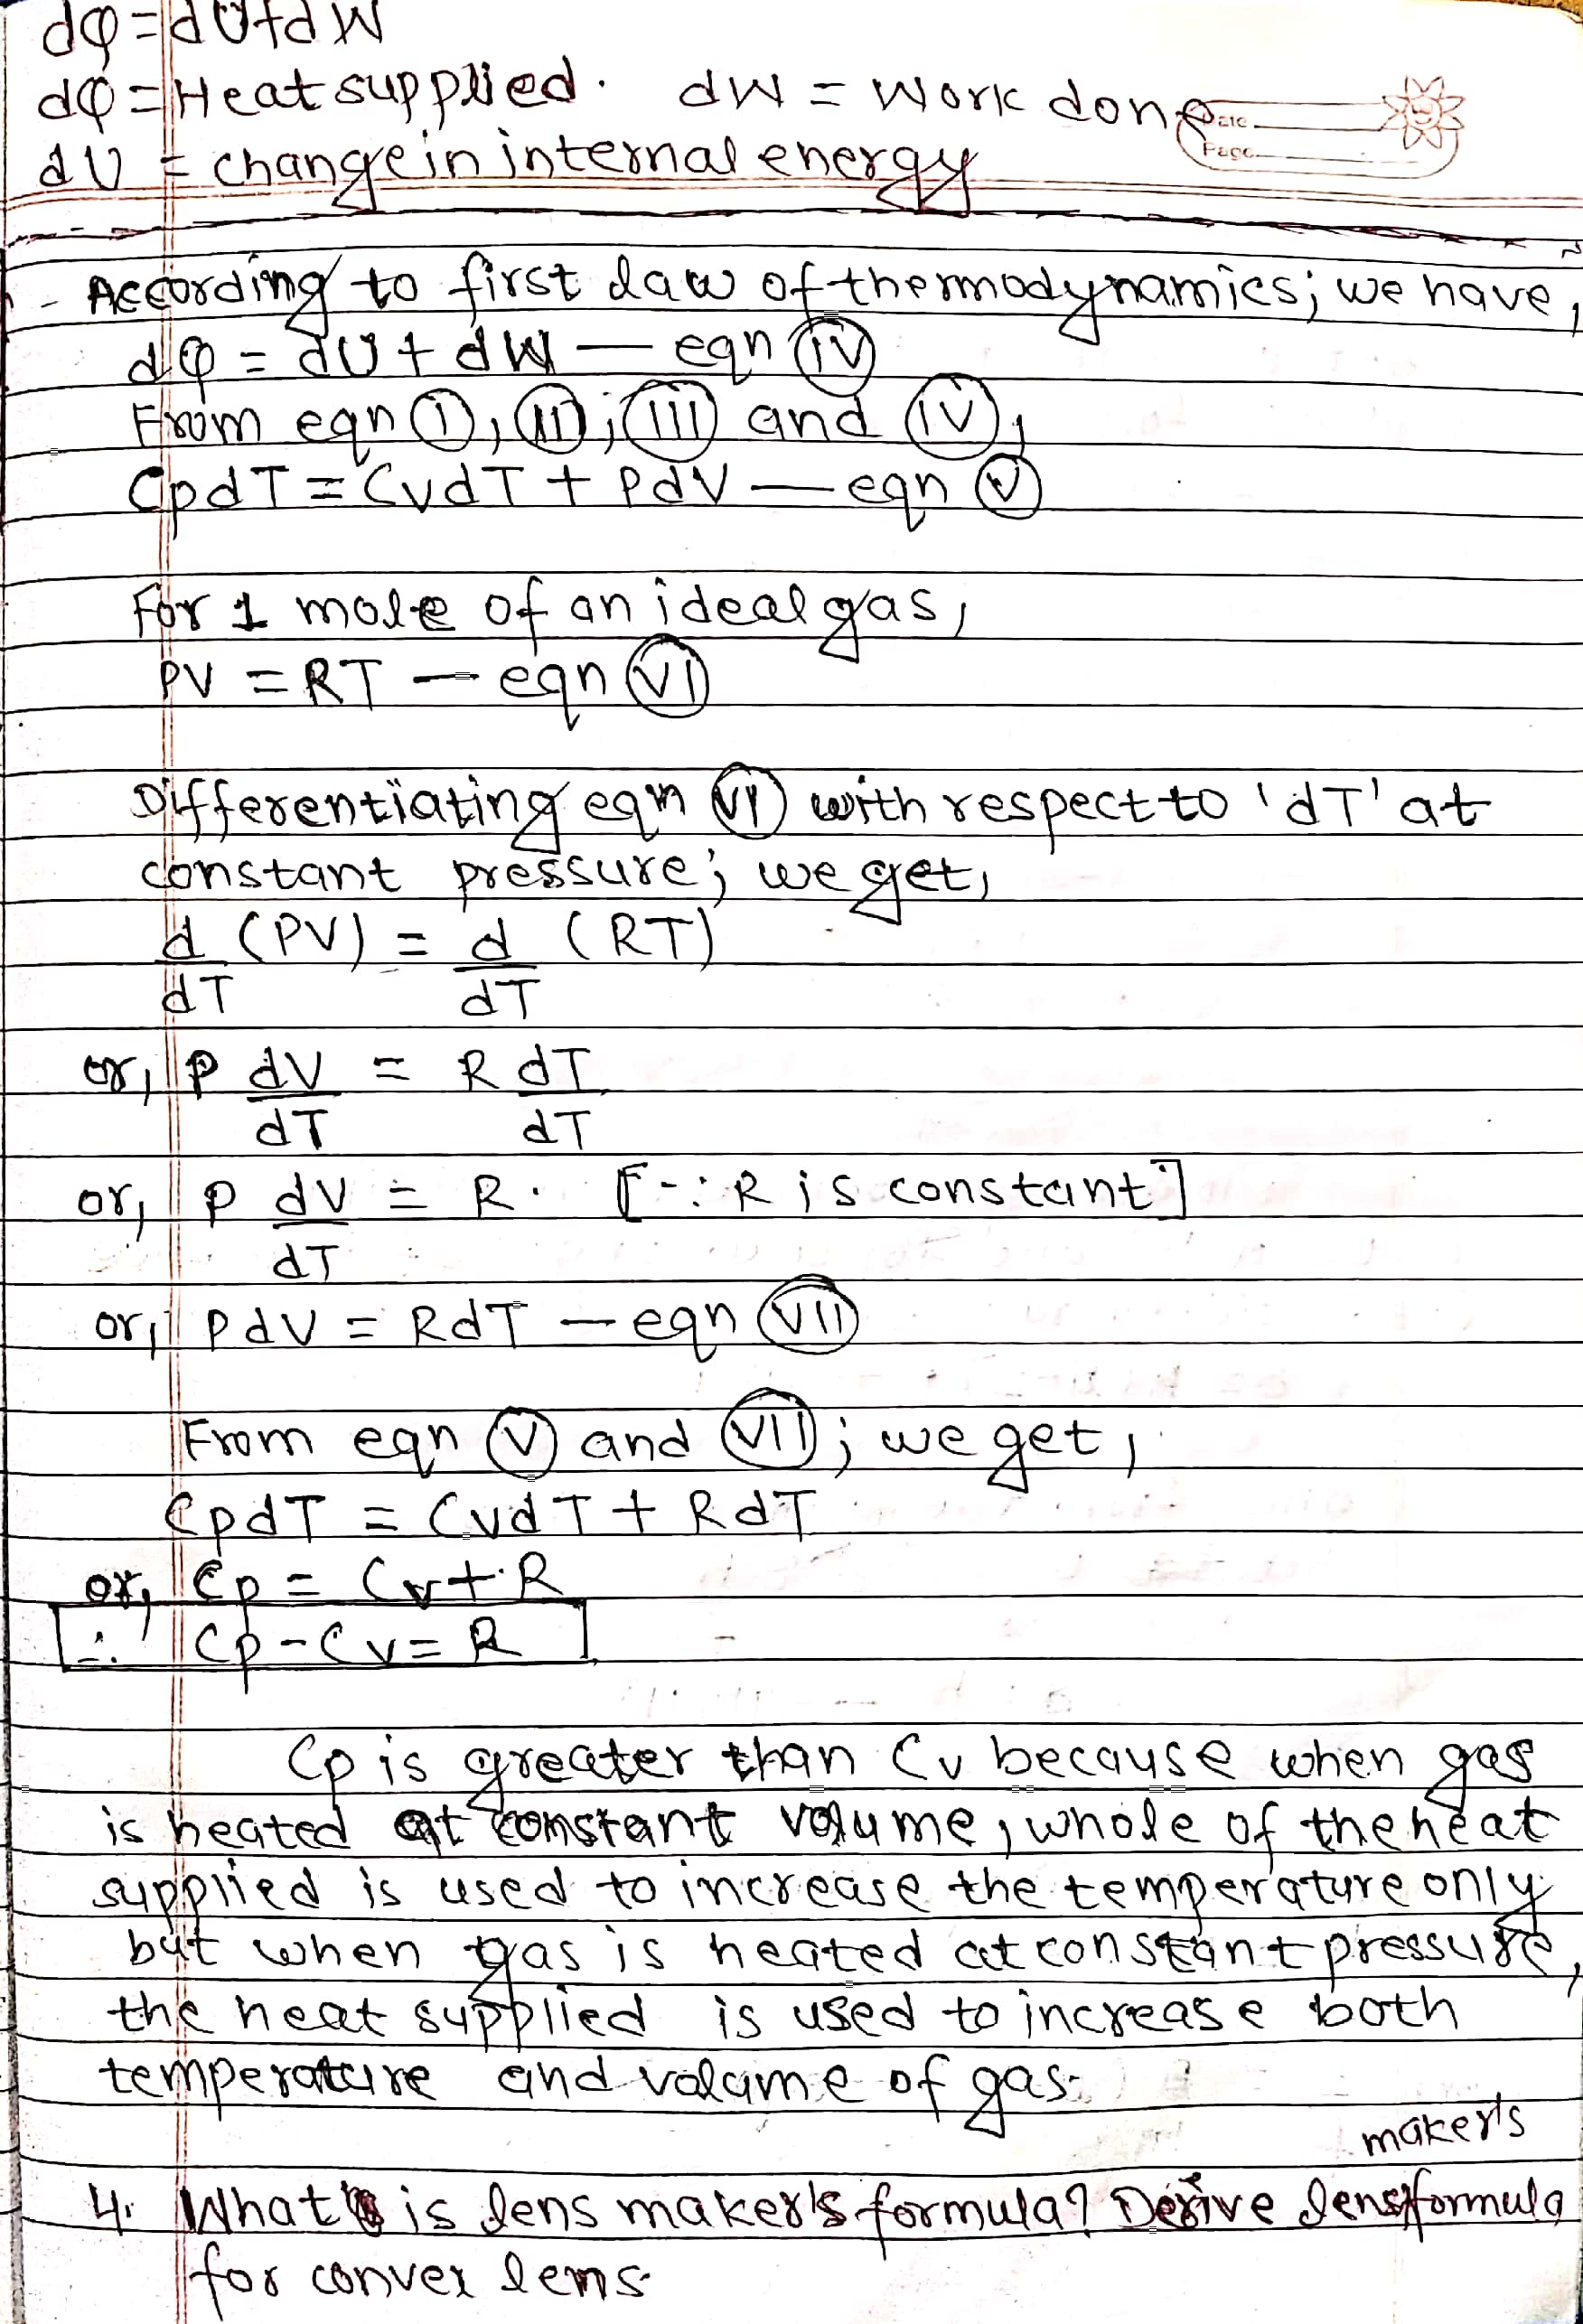 dQ = dU + dW
dQ = Heat supplied. dW = Work done
Date
Page
dU = change in internal energy
- According to first law of thermodynamics; we have,
dQ = dU + dW — eqn (IV)
From eqn (I), (II), (III) and (IV),
CpdT = CvdT + PdV — eqn (V)
For 1 mole of an ideal gas,
PV = RT — eqn (VI)
Differentiating eqn (VI) with respect to 'dT' at
constant pressure; we get,
d/dT (PV) = d/dT (RT)
or, P dV/dT = R dT/dT
or, P dV/dT = R. [∵ R is constant]
or, PdV = RdT — eqn (VII)
From eqn (V) and (VII); we get,
CpdT = CvdT + RdT
or, Cp = Cv + R
∴ Cp - Cv = R
Cp is greater than Cv because when gas
is heated at constant volume, whole of the heat
supplied is used to increase the temperature only
but when gas is heated at constant pressure,
the heat supplied is used to increase both
temperature and volume of gas.
maker's
4. What is lens maker's formula? Derive lens formula
for convex lens.